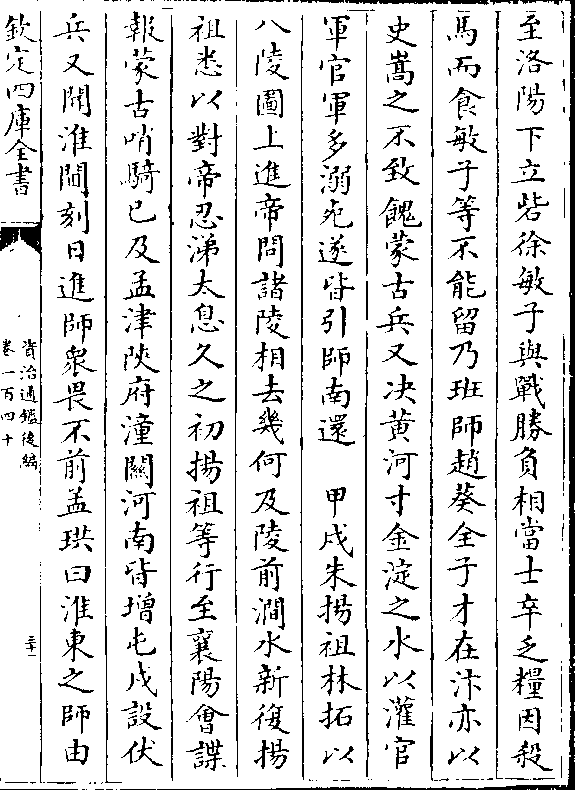 至洛陽下立砦徐敏子與戰勝負相當士卒乏糧因殺
馬而食敏子等不能留乃班師趙葵全子才在汴亦以
史嵩之不致餽蒙古兵又决黄河寸金淀之水以灌官
軍官軍多溺死遂皆引師南還　甲戌朱揚祖林拓以
八陵圖上進帝問諸陵相去幾何及陵前澗水新復揚
祖悉以對帝忍涕太息久之初揚祖等行至襄陽會諜
報蒙古哨騎已及孟津陜府潼關河南皆增屯戍設伏
兵又聞淮閫刻日進師衆畏不前孟珙曰淮東之師由
欽定四庫全書
資治通鑑後編
卷一百四十